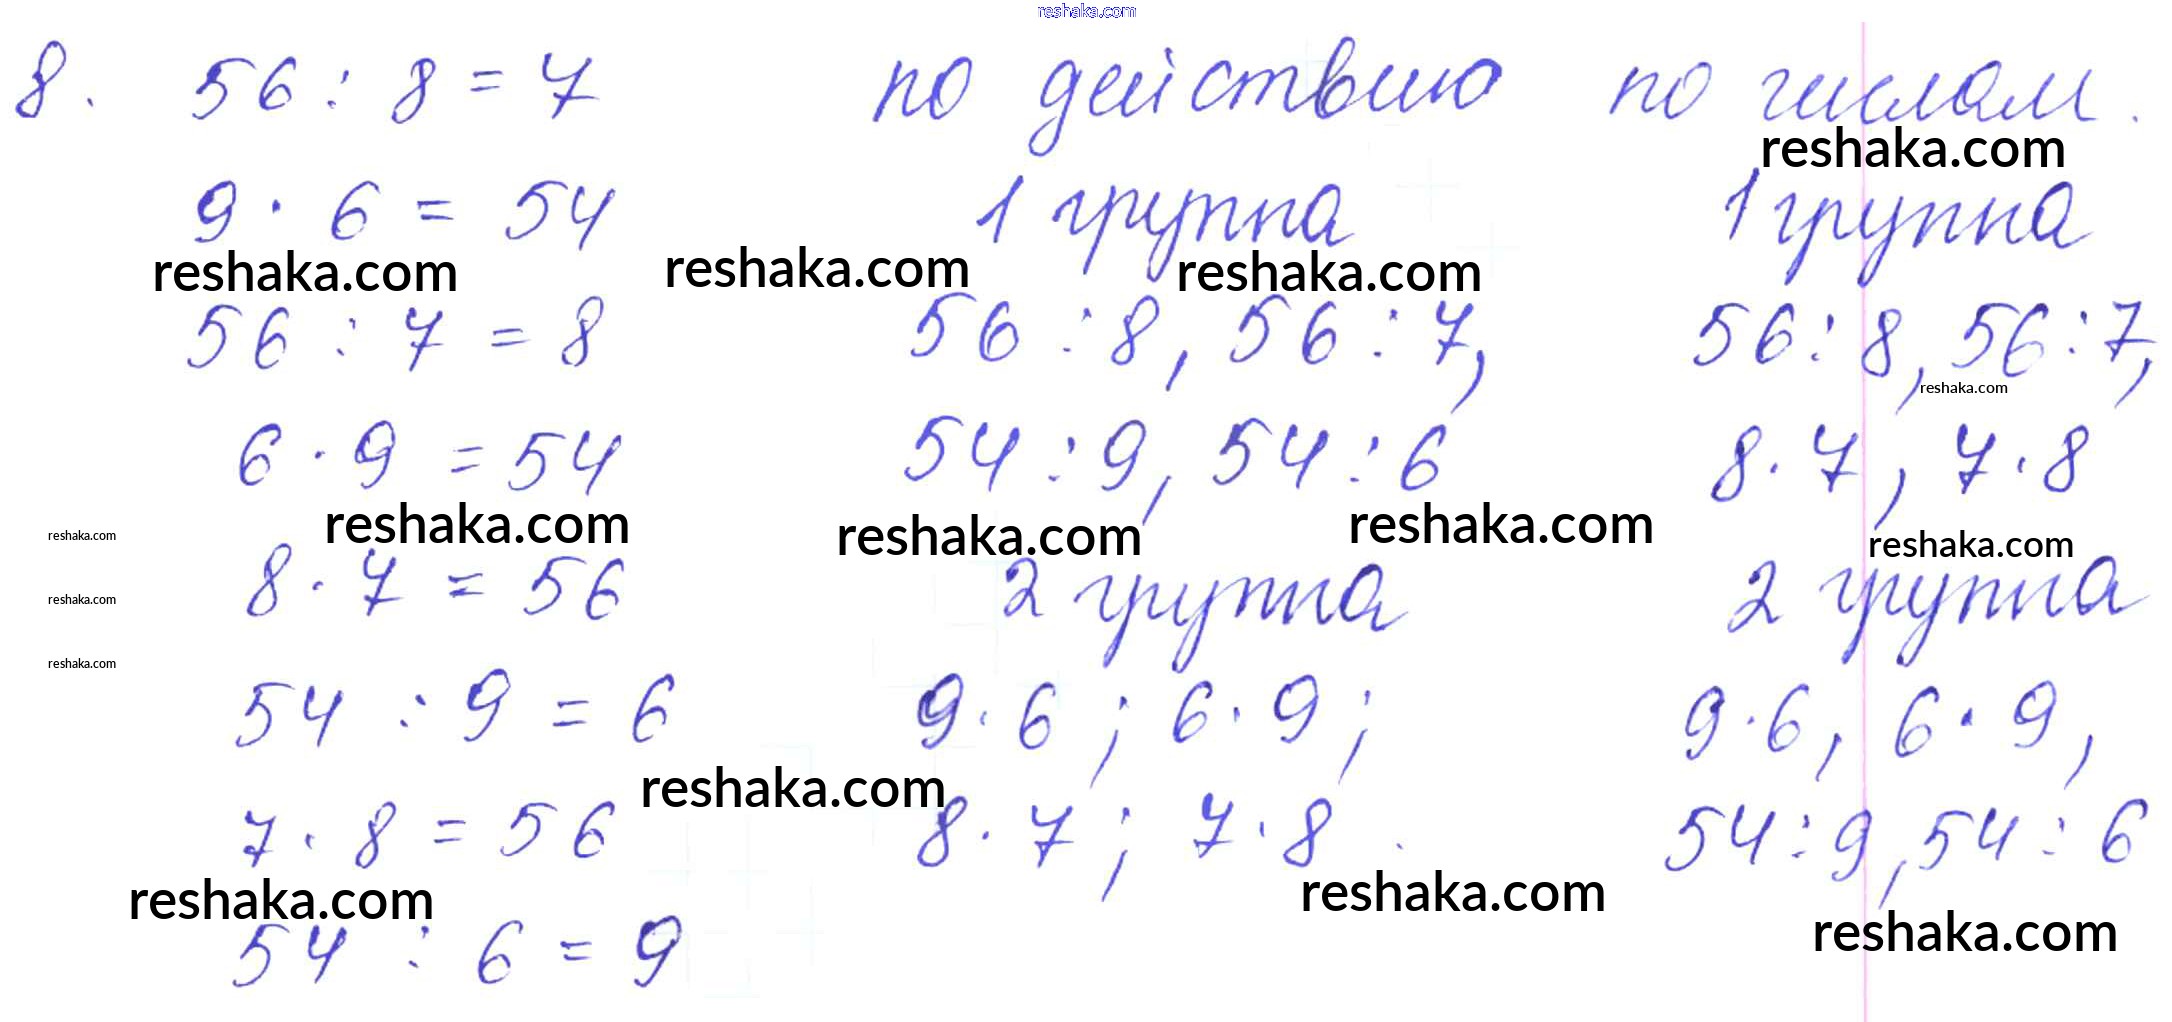 reshaka.com
8. 56 : 8 = 7
9 · 6 = 54
reshaka.com
56 : 7 = 8
6 · 9 = 54
reshaka.com
reshaka.com
8 · 7 = 56
reshaka.com
reshaka.com
54 : 9 = 6
7 · 8 = 56
reshaka.com
54 : 6 = 9
по действию
1 группа
reshaka.com reshaka.com
56 : 8, 56 : 7,
54 : 9, 54 : 6
reshaka.com reshaka.com
2 группа
9 · 6 ; 6 · 9 ;
reshaka.com
8 · 7 ; 7 · 8 .
reshaka.com
по числам.
reshaka.com
1 группа
56 : 8, 56 : 7,
reshaka.com
8 · 7, 7 · 8
reshaka.com
2 группа
9 · 6, 6 · 9,
54 : 9, 54 : 6
reshaka.com